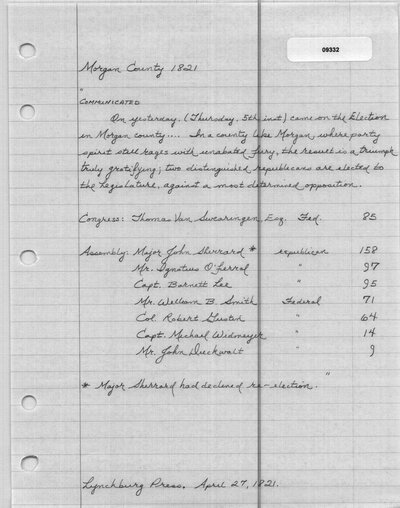 09332
Morgan County 1821
"
COMMUNICATED
On yesterday, (Thursday, 5th inst) came on the Election
in Morgan county.... In a county like Morgan, where party
spirit still rages with unabated fury, the result is a triumph
truly gratifying; two distinguished republicans are elected to
the Legislature, against a most determined opposition.
Congress: Thomas Van Swearingen, Esq. Fed. 85
Assembly: Major John Sherrard * republican 158
Mr. Ignatius O'Ferral " 97
Capt. Barnett Lee " 95
Mr. Wellson B. Smith Federal 71
Col. Robert Gustin " 64
Capt. Michael Widmeyer " 14
Mr. John Duckwalt " 9
"
* Major Sherrard had declined re-election.
Lynchburg Press. April 27, 1821.